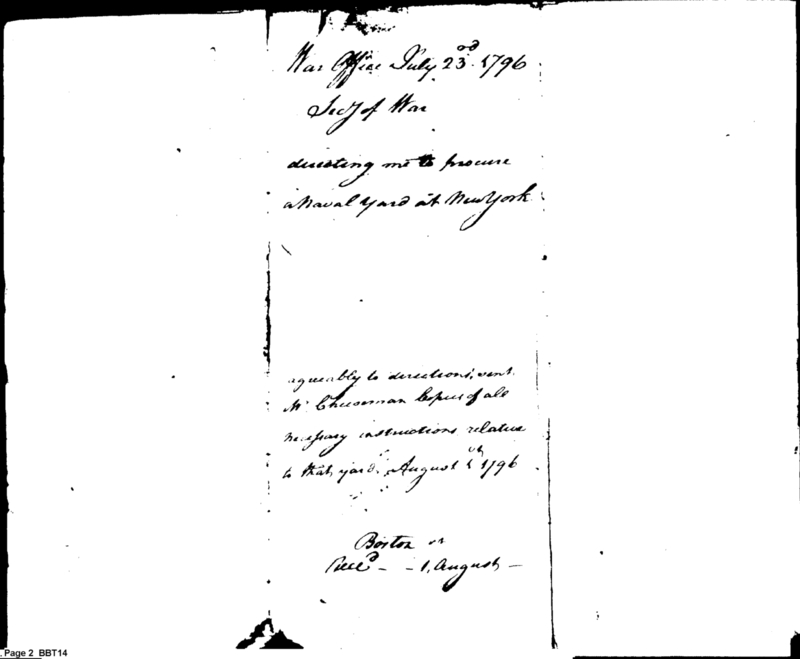 War Office July 23.od 1796
Secy of War
directing me to procure
a Naval Yard at New York
agreeably to directions, sent
Mr Cheesman Copies of all
necessary instructions relative
to that yard. August 1796
Boston
Recd - - 1, August -
Page 2 BBT14